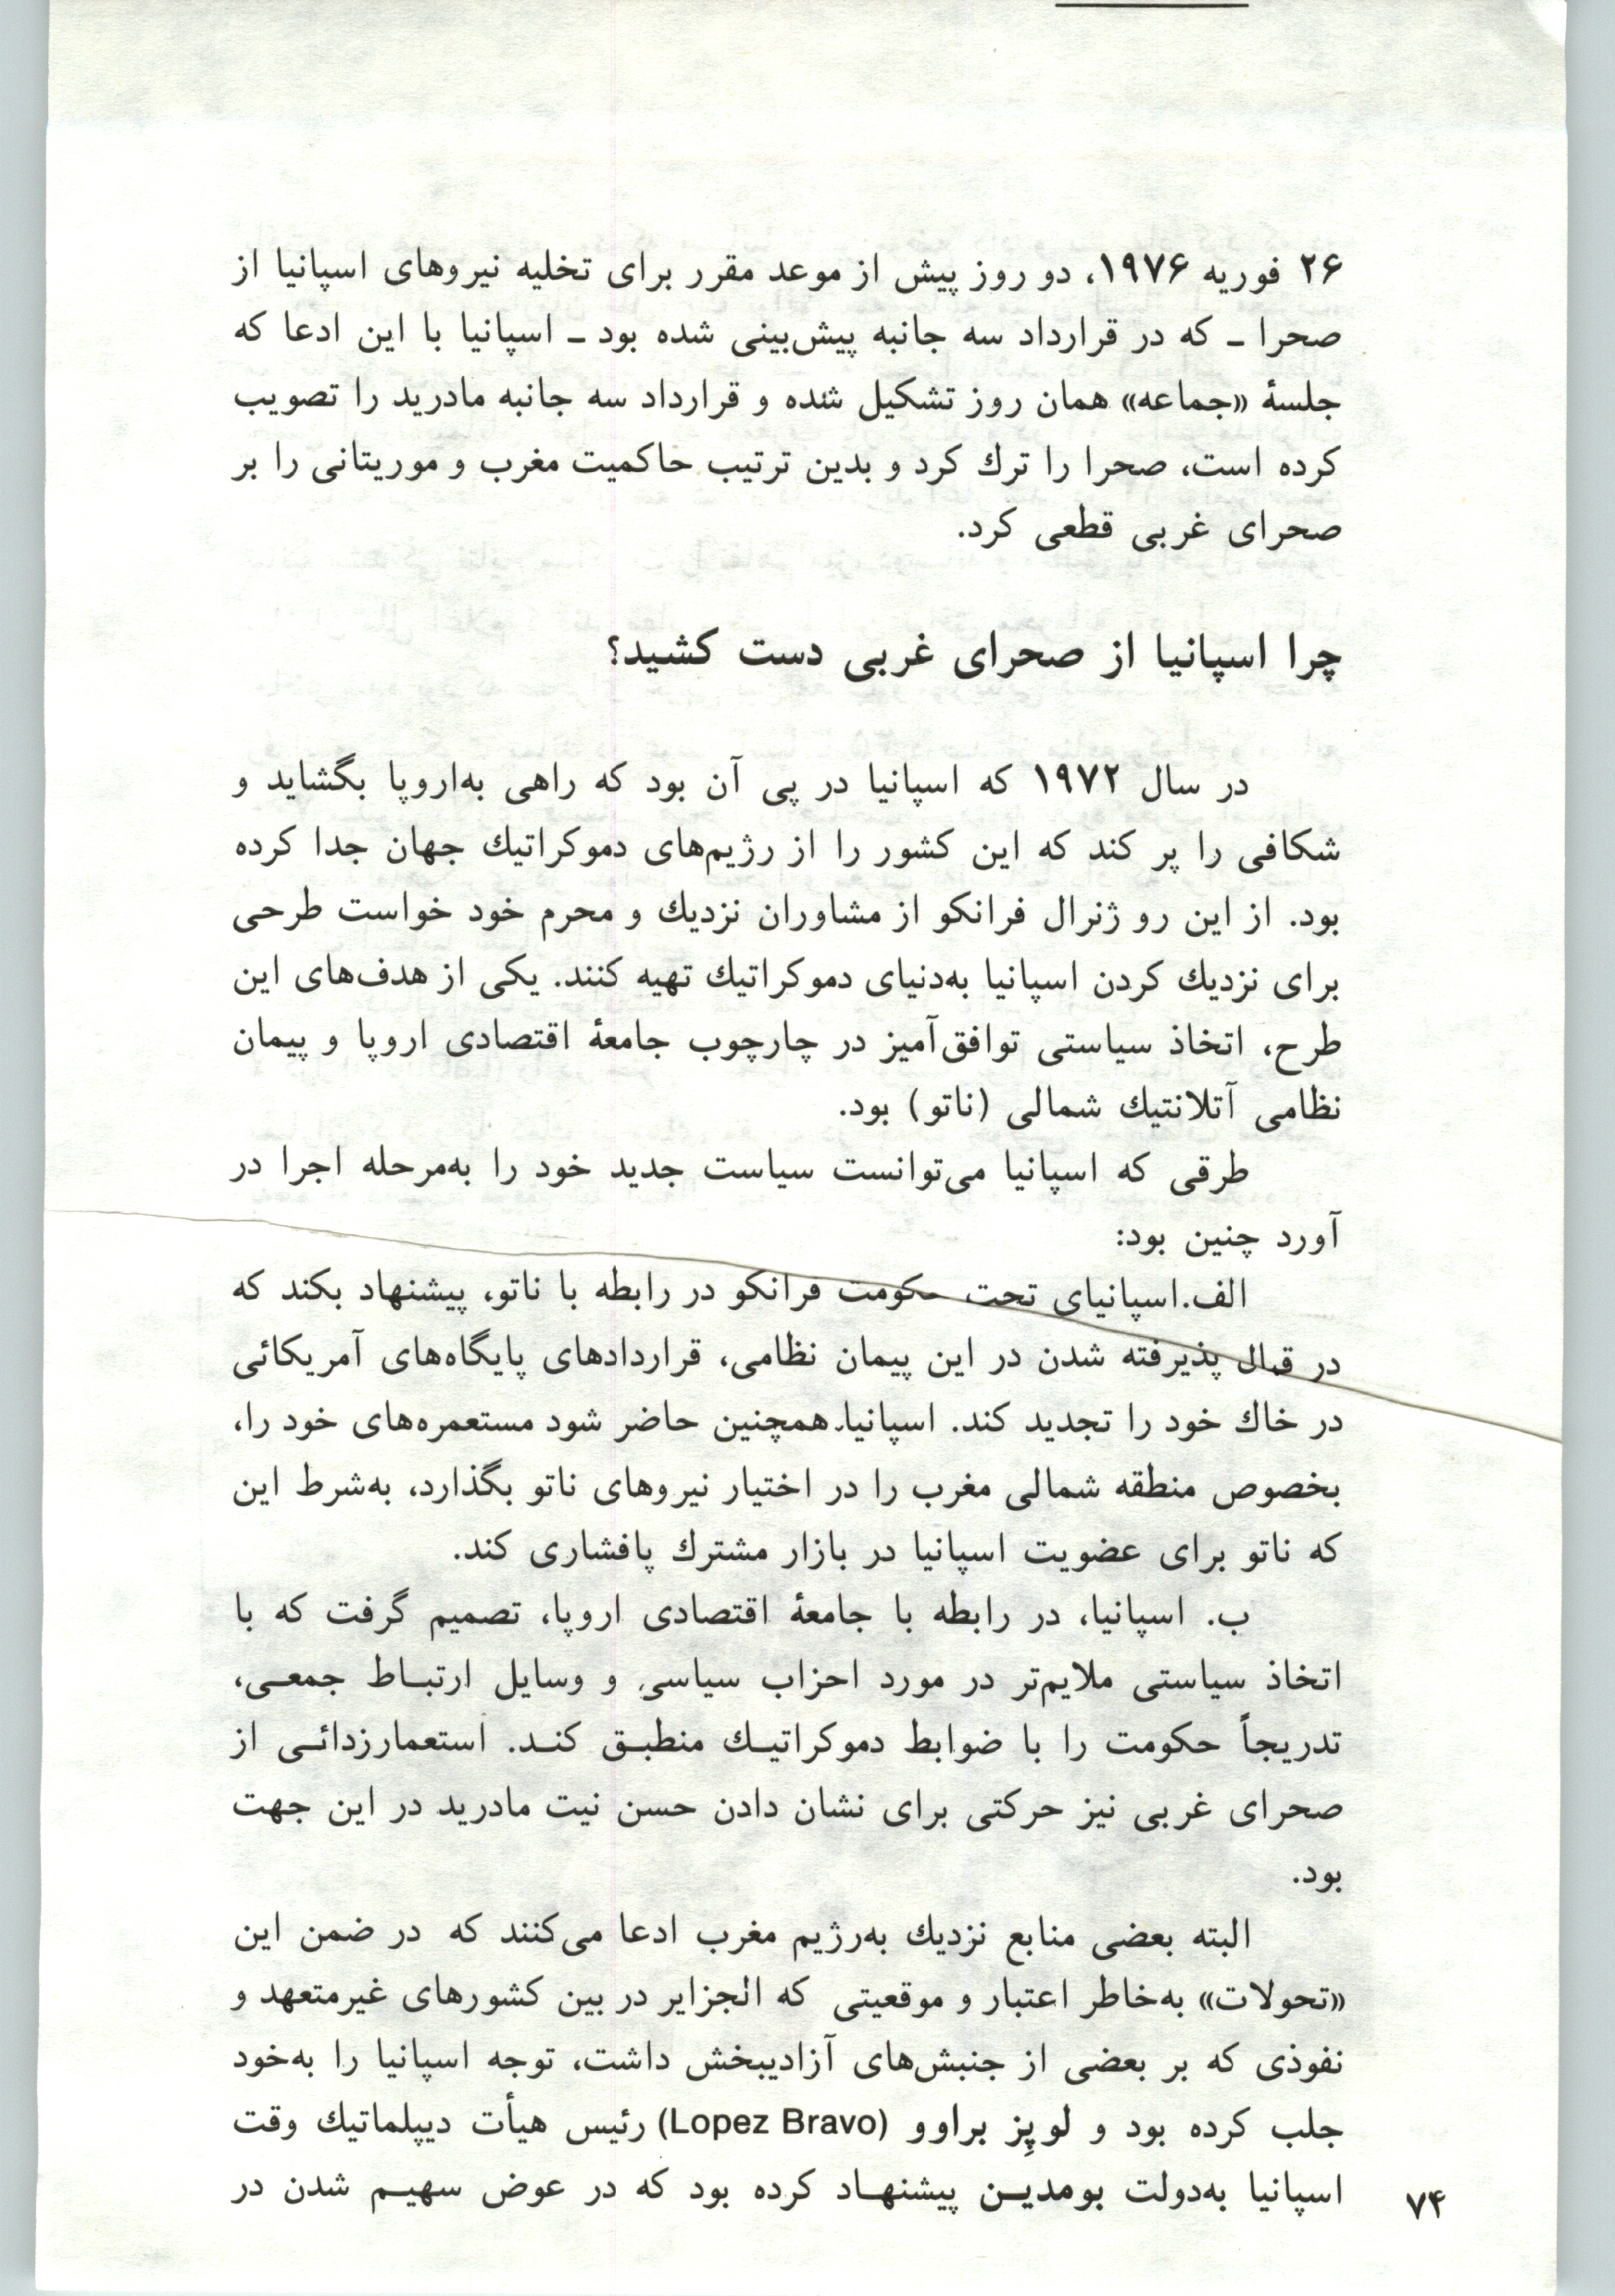 ۲۶ فوریه ۱۹۷۶، دو روز پیش از موعد مقرر برای تخلیه نیروهای اسپانیا از
صحرا ـ که در قرارداد سه جانبه پیش‌بینی شده بود ـ اسپانیا با این ادعا که
جلسهٔ «جماعه» همان روز تشکیل شده و قرارداد سه جانبه مادرید را تصویب
کرده است، صحرا را ترك کرد و بدین ترتیب حاکمیت مغرب و موریتانی را بر
صحرای غربی قطعی کرد.
چرا اسپانیا از صحرای غربی دست کشید؟
در سال ۱۹۷۲ که اسپانیا در پی آن بود که راهی به‌اروپا بگشاید و
شکافی را پر کند که این کشور را از رژیم‌های دموکراتیك جهان جدا کرده
بود. از این رو ژنرال فرانکو از مشاوران نزدیك و محرم خود خواست طرحی
برای نزدیك کردن اسپانیا به‌دنیای دموکراتیك تهیه کنند. یکی از هدف‌های این
طرح، اتخاذ سیاستی توافق‌آمیز در چارچوب جامعهٔ اقتصادی اروپا و پیمان
نظامی آتلانتیك شمالی (ناتو) بود.
طرقی که اسپانیا می‌توانست سیاست جدید خود را به‌مرحله اجرا در
آورد چنین بود:
الف. اسپانیای تحت حکومت فرانکو در رابطه با ناتو، پیشنهاد بکند که
در قبال پذیرفته شدن در این پیمان نظامی، قراردادهای پایگاه‌های آمریکائی
در خاك خود را تجدید کند. اسپانیا همچنین حاضر شود مستعمره‌های خود را،
بخصوص منطقه شمالی مغرب را در اختیار نیروهای ناتو بگذارد، به‌شرط این
که ناتو برای عضویت اسپانیا در بازار مشترك پافشاری کند.
ب. اسپانیا، در رابطه با جامعهٔ اقتصادی اروپا، تصمیم گرفت که با
اتخاذ سیاستی ملایم‌تر در مورد احزاب سیاسی و وسایل ارتبـاط جمعـی،
تدریجاً حکومت را با ضوابط دموکراتیـك منطبـق کنـد. استعمارزدائـی از
صحرای غربی نیز حرکتی برای نشان دادن حسن نیت مادرید در این جهت
بود.
البته بعضی منابع نزدیك به‌رژیم مغرب ادعا می‌کنند که در ضمن این
«تحولات» به‌خاطر اعتبار و موقعیتی که الجزایر در بین کشورهای غیرمتعهد و
نفوذی که بر بعضی از جنبش‌های آزادیبخش داشت، توجه اسپانیا را به‌خود
جلب کرده بود و لوپِز براوو (Lopez Bravo) رئیس هیأت دیپلماتیك وقت
اسپانیا به‌دولت بومدیـن پیشنهـاد کرده بود که در عوض سهیـم شدن در
۷۴